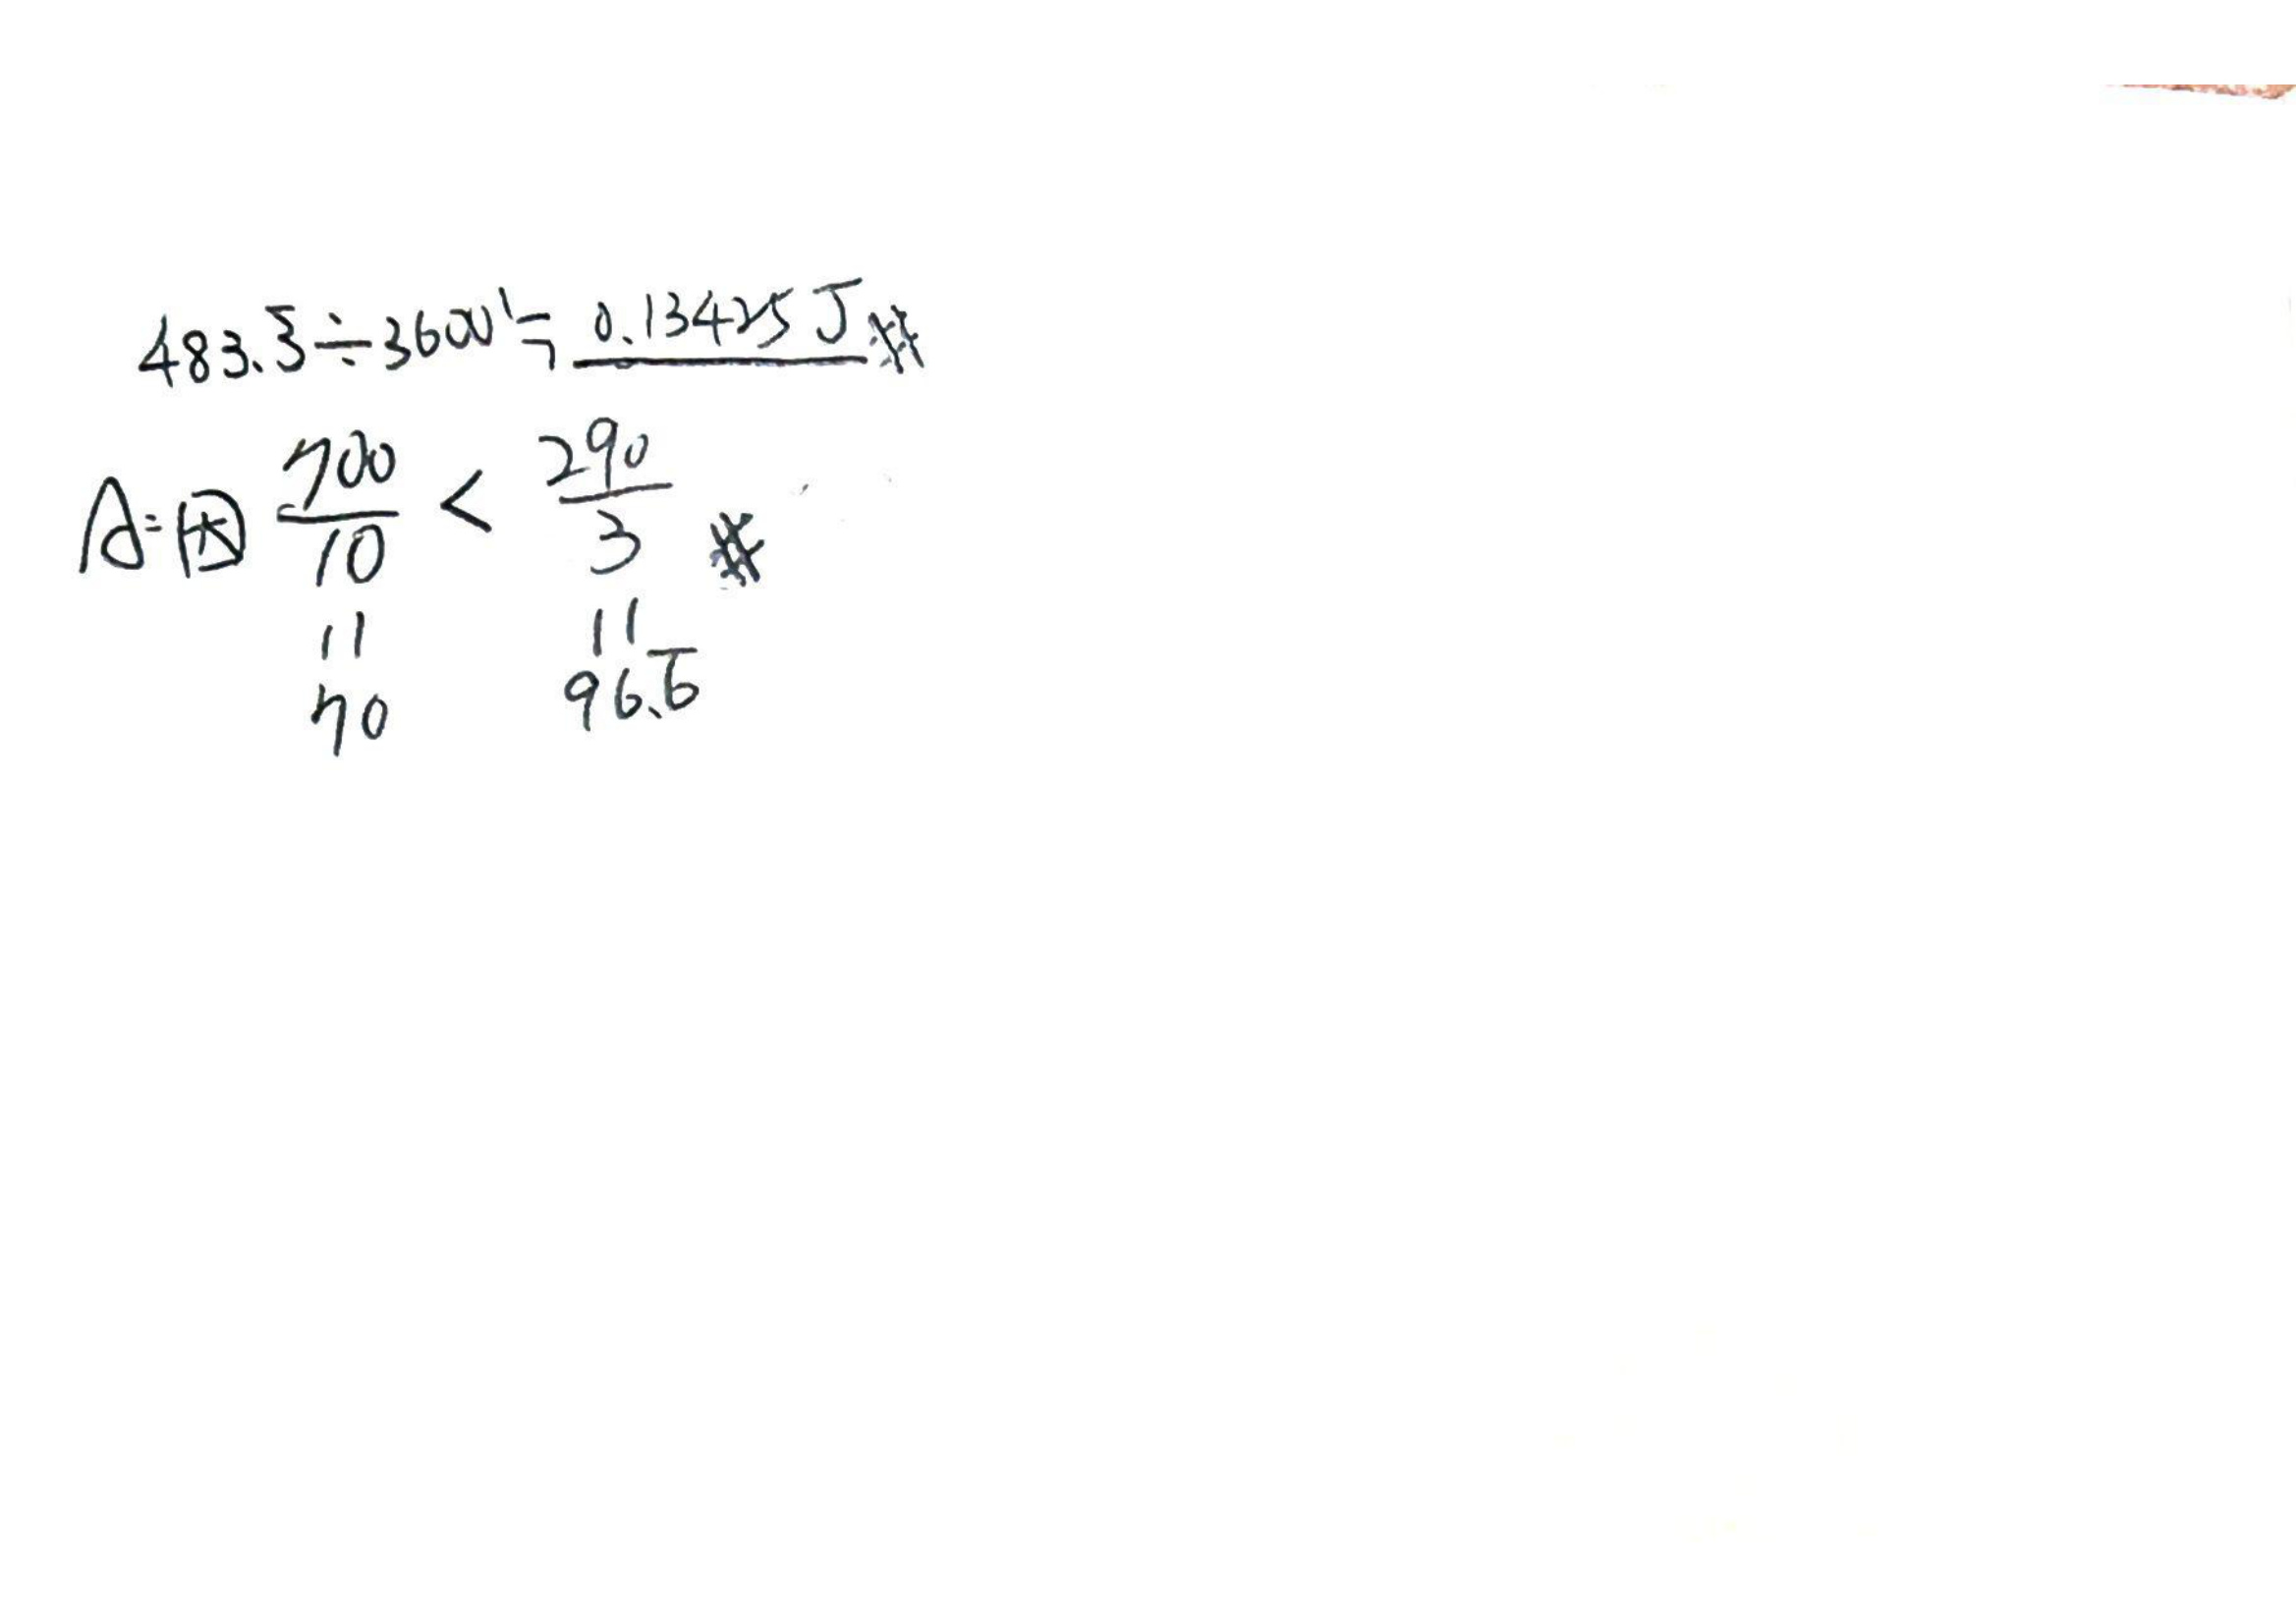 483.3̅÷3600≒0.13425J#
A:因 700/10 < 290/3 #
|| ||
70 96.6̅